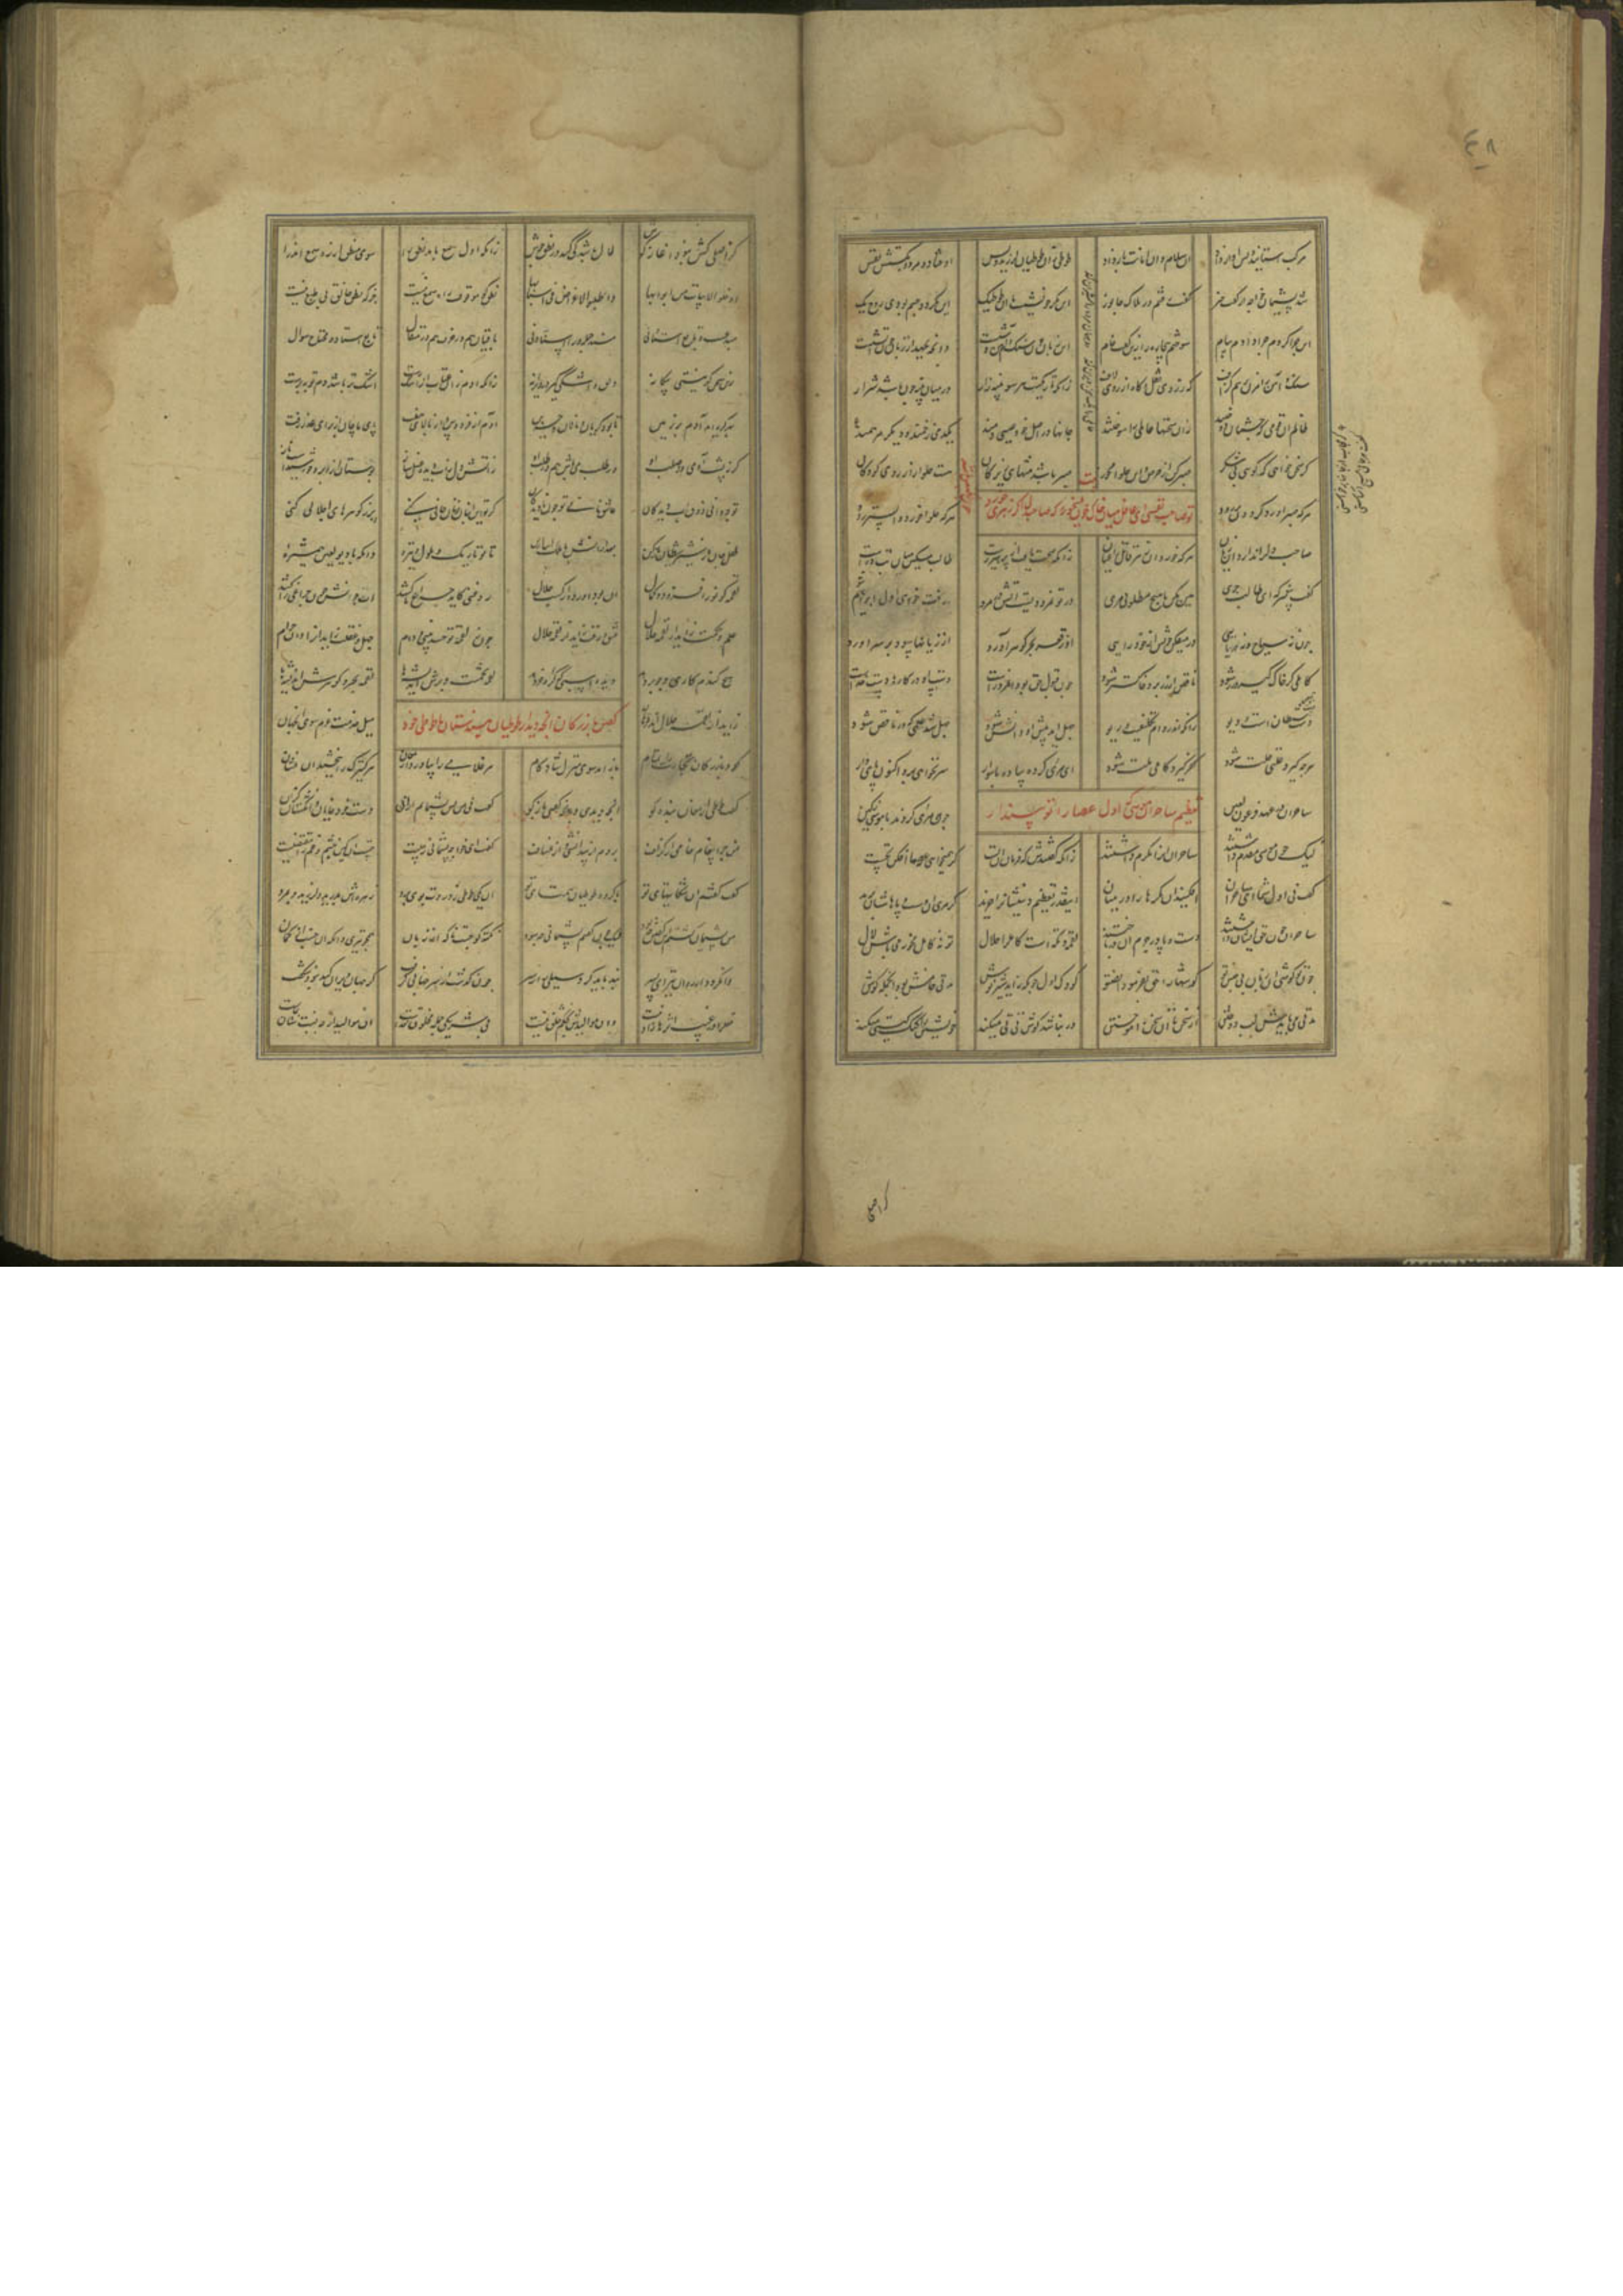 مرکب استانید پس آواز داد آن سلام و آن امانت باز داد طوطیی زان طوطیان لرزید بس اوفتاد و مرد و بگسستش نفس
شد پشیمان خواجه از گفت خبر گفت رفتم در هلاک جانور این مگر خویشست با آن طوطیک این مگر دو جسم بود و روح یک
این چرا کردم چرا دادم پیام سوختم بیچاره را زین گفت خام این زبان چون سنگ و هم آتش وشست وانچه بجهد از زبان چون آتشست
سنگ و آهن را مزن بر هم گزاف که ز روی نقل و گاه از روی لاف زانکه تاریکست هر سو پنبه زار در میان پنبه چون باشد شرار
ظالم آن قومی که چشمان دوختند زان سخنها عالمی را سوختند جانها در اصل خود عیسی دمند یکدمی زخمند و دیگر مرهمند
گر سخن خواهی که گویی چون شکر صبر کن از حرص و این حلوا مخور صبر باشد مشتهای زیرکان هست حلوا آرزوی کودکان
هرکه صبر آورد گردون بر رود هرکه حلوا خورد واپس تر رود
تو صاحب نفسی ای غافل میان خاک خون میخور که صاحب دل اگر زهری خورد
صاحب دل را ندارد آن زیان گر خورد او زهر قاتل را عیان زانکه صحت یافت از پرهیز رست طالب مسکین میان تب درست
گفت پیغمبر که ای طالب جری هین مکن با هیچ مطلوبی مری در تو نمرودیست آتش در مرو رفت خواهی اول ابراهیم شو
چون نه سباح و نه دریایی در میفکن خویش از خودرایی او ز قعر بحر گوهر آورد از زیانها سود بر سر آورد
کاملی گر خاک گیرد زر شود ناقص ار زر برد خاکستر شود چون قبول حق بود آن مرد راست دست او در کارها دست خداست
دست ناقص دست شیطان است و دیو زانکه اندر دام تکلیفست و ریو جهل آید پیش او دانش شود جهل شد علمی که در ناقص شود
هرچه گیرد علتی علت شود کفر گیرد کاملی ملت شود ای مری کرده پیاده با سوار سر نخواهی برد اکنون پای دار
تعظیم ساحران موسی را که اول عصا را تو بینداز
ساحران در عهد فرعون لعین چون مری کردند با موسی بکین
لیک چون موسی مقدم داشتند ساحران او را مکرم داشتند زانکه گفتندش که فرمان آن تست گر همیخواهی عصا افکن نخست
گفت نی اول شما ای ساحران افکنید آن مکرها را در میان اینقدر تعظیم دینشان را خرید کز مری آن دست و پاهاشان برید
ساحران چون حق او بشناختند دست و پا در جرم آن درباختند لقمه و نکته است کامل را حلال تو نه کامل مخور می باش لال
چون تو گوشی او زبان نی جنس تو گوشها را حق بفرمود انصتوا کودک اول چون بزاید شیرنوش مدتی خامش بود او جمله گوش
مدتی می بایدش لب دوختن از سخن تا او سخن آموختن ور نباشد گوش و تی تی میکند خویشتن را گنگ گیتی میکند
کر اصلی
کر اصلی کش نبود آغاز گوش لال باشد کی کند در نطق جوش زانکه اول سمع باید نطق را سوی منطق از ره سمع اندر آ
ادخلوا الابیات من ابوابها واطلبوا الاغراض فی اسبابها نطق کان موقوف راه سمع نیست جز که نطق خالق بی طمع نیست
مبدعست و تابع استاد نی مسند جمله ورا اسناد نی باقیان هم در حرف هم در مقال تابع استاد و محتاج مثال
زین سخن گر نیستی بیگانه دلق و اشکی گیر در ویرانه زانکه آدم زان عتاب از اشک رست اشک تر باشد دم توبه پرست
بهر گریه آدم آمد بر زمین تا بود گریان و نالان و حزین آدم از فردوس و از بالای هفت پای ماچان از برای عذر رفت
گر ز پشت آدمی وز صلب او در طلب می باش هم در طلب او ز آتش دل و آب دیده نقل ساز بوستان از ابر و خورشیدست تاز
تو چه دانی ذوق آب دیدگان عاشق نانی تو چون نادیدگان گر تو این انبان ز نان خالی کنی پر ز گوهرهای اجلالی کنی
طفل جان از شیر شیطان باز کن بعد از آنش با ملک انباز کن تا تو تاریک و ملول و تیره دان که با دیو لعین همشیره
لقمه کو نور افزود و کمال آن بود آورده از کسب حلال روغنی کاید چراغ ما کشد آب خوانش چون چراغی را کشد
علم و حکمت زاید از لقمه حلال عشق و رقت زاید از لقمه حلال چون ز لقمه تو حسد بینی و دام جهل و غفلت زاید آن را دان حرام
هیچ گندم کاری و جو بر دهد دیده اسبی که کره خر دهد لقمه تخمست و برش اندیشها لقمه بحر و گوهرش اندیشها
زاید از لقمه حلال اندر دهان میل خدمت عزم سوی آن جهان
گفتن بازرگان آنچه دید از طوطیان هندستان با طوطی خود
کرد بازرگان تجارت را تمام باز آمد سوی منزل شادکام هر غلامی را بیاورد ارمغان هر کنیزک را ببخشید او نشان
گفت طوطی ارمغان بنده کو آنچه دیدی و آنچه گفتی بازگو گفت نی من خود پشیمانم از آن دست خود خایان و انگشتان گزان
من چرا پیغام خامی از گزاف بردم از بیدانشی و از نشاف گفت ای خواجه پشیمانی ز چیست چیست آن کین خشم و غم را مقتضیست
گفت گفتم آن شکایتهای تو با گروه طوطیان همتای تو آن یکی طوطی ز دردت بوی برد زهره اش بدرید و لرزید و بمرد
من پشیمان گشتم این گفتن چه بود لیک چون گفتم پشیمانی چه سود نکته کان جست ناگه از زبان همچو تیری دان که آن جست از کمان
وا نگردد از ره آن تیر ای پسر بند باید کرد سیلی را ز سر چون گذشت از سر جهانی را گرفت گر جهان ویران کند نبود شگفت
فعل را در غیب اثرها زادنیست وان موالیدش بحکم خلق نیست بی شریکی جمله مخلوق خداست آن موالید ار چه نسبتشان بماست